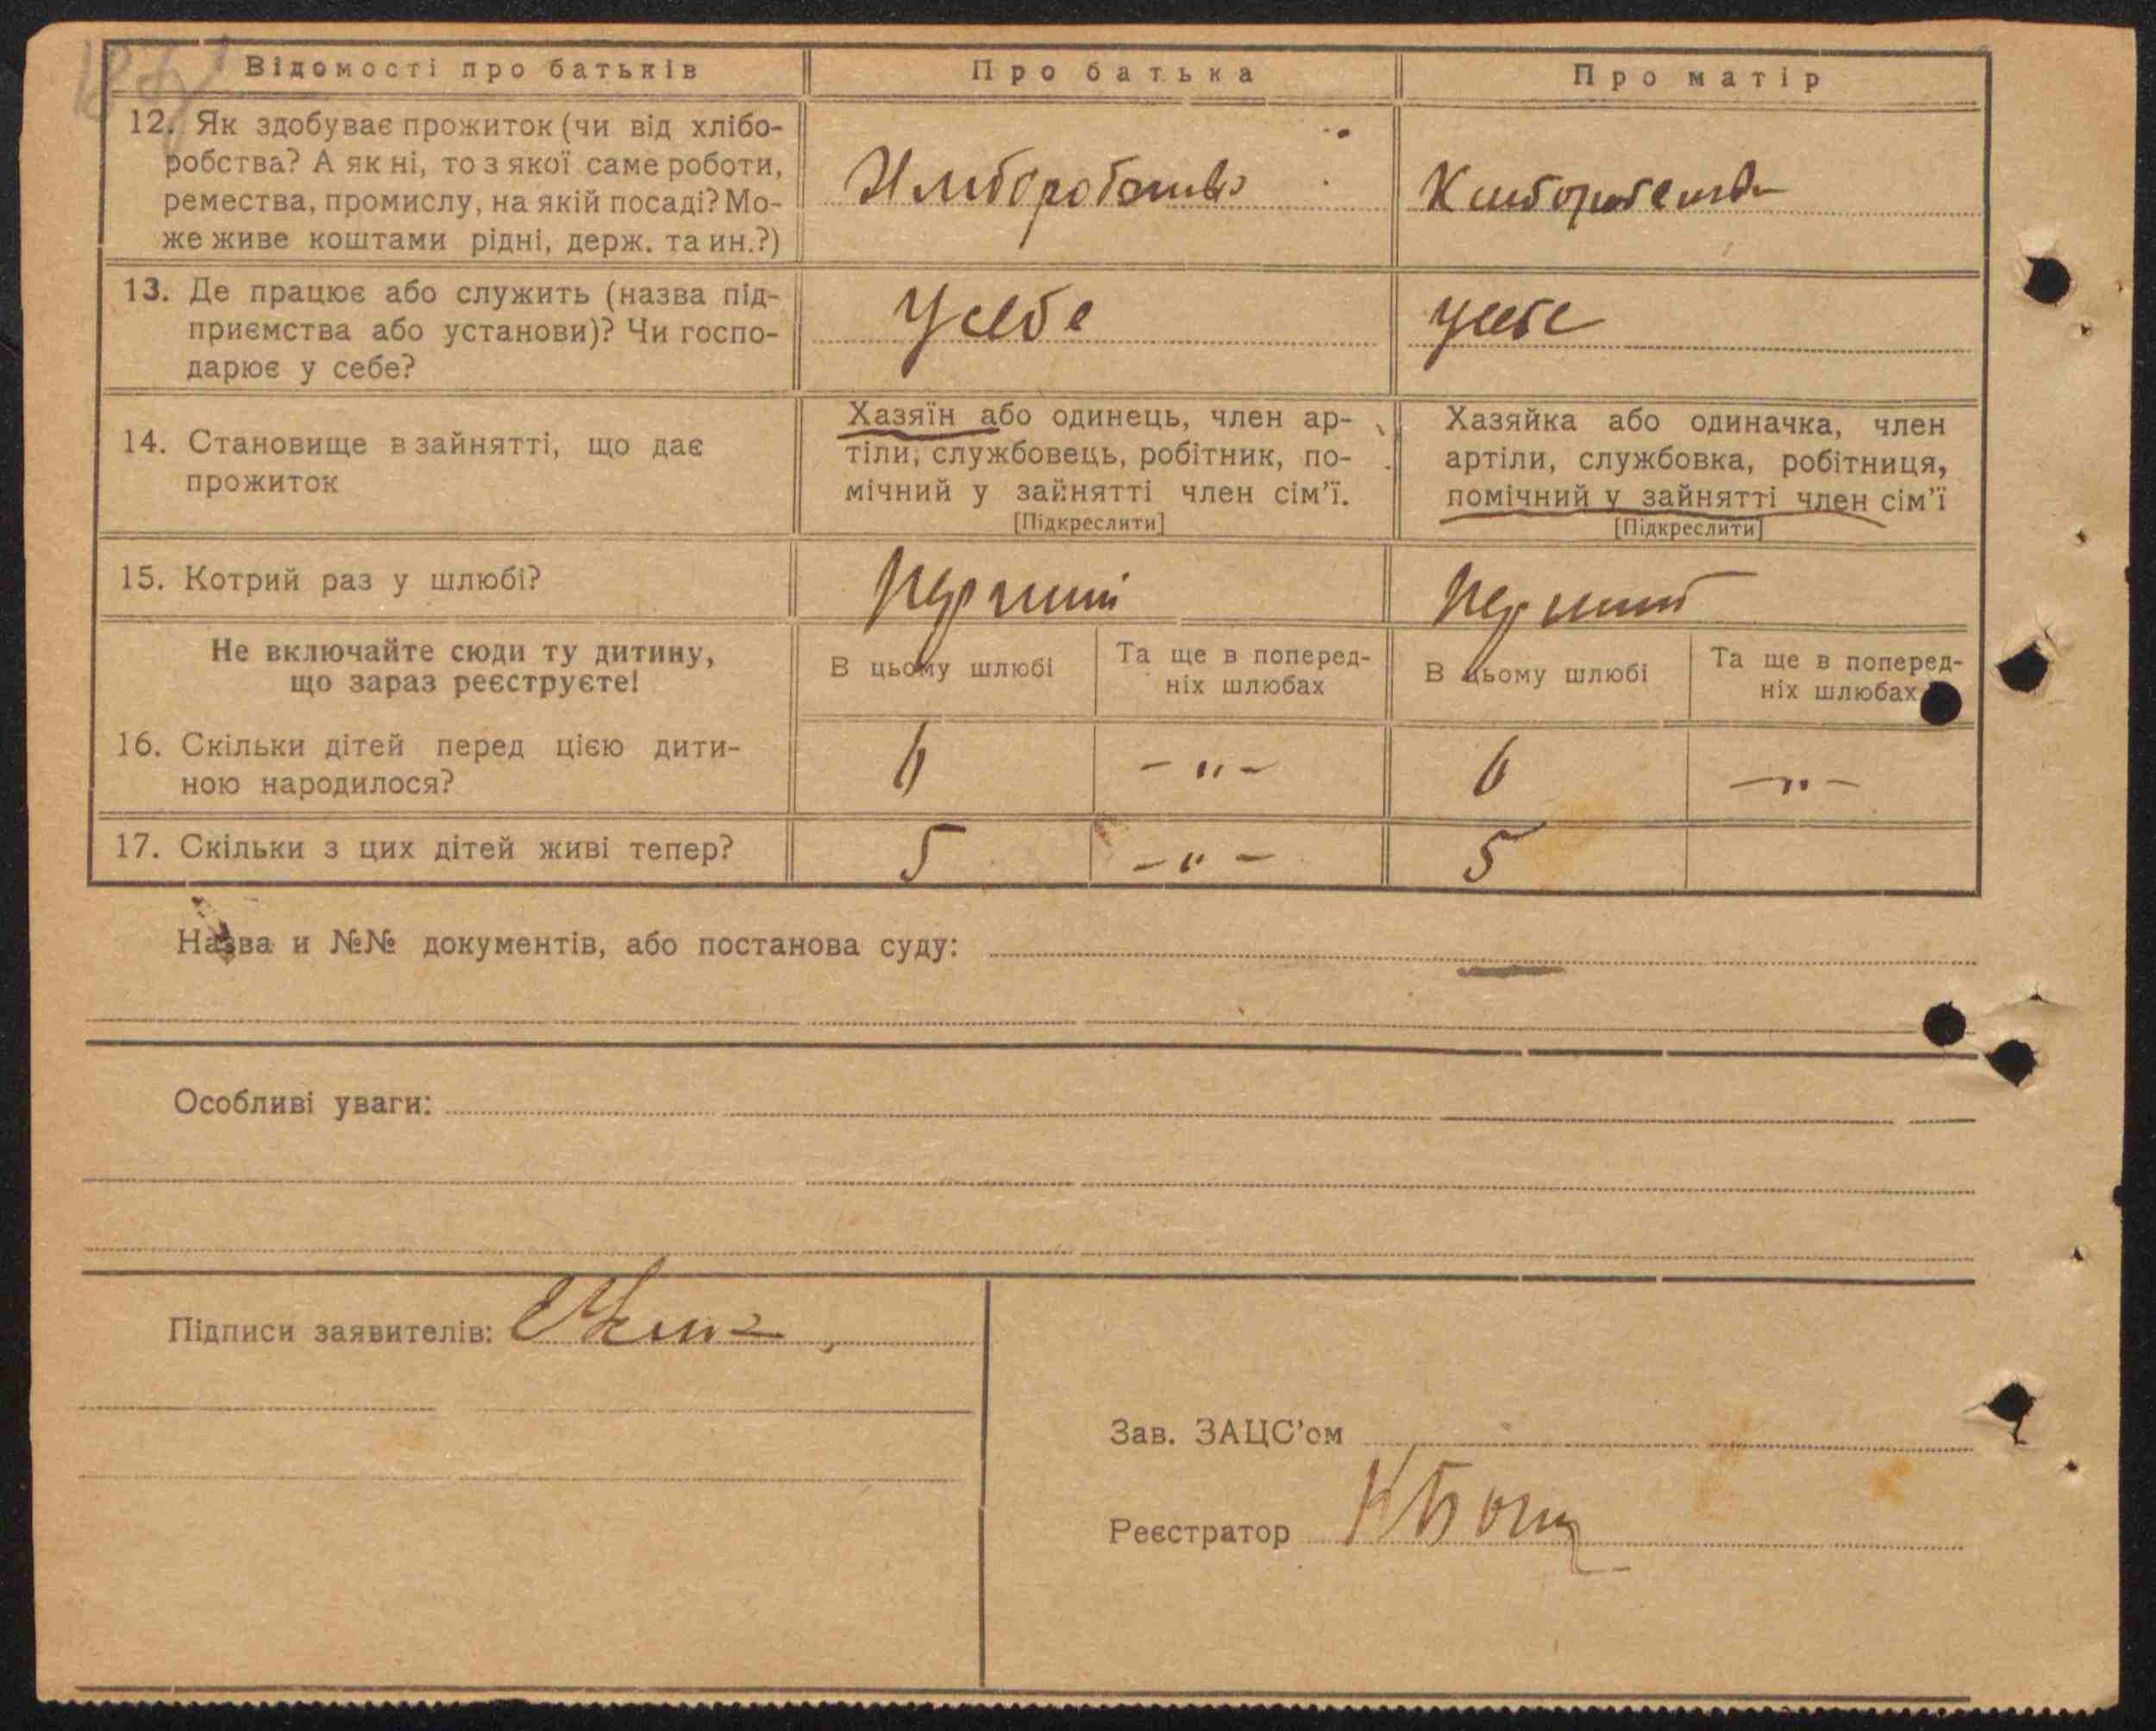 Відомості про батьків
Про батька
Про матір
12. Як здобуває прожиток (чи від хлібо-
робства? А як ні, то з якої саме роботи,
ремества, промислу, на якій посаді? Мо-
же живе коштами рідні, держ. та ин.?)
Хліборобство
Хліборобство
13. Де працює або служить (назва під-
приємства або установи)? Чи госпо-
дарює у себе?
У себе
у себе
14. Становище в зайнятті, що дає
прожиток
Хазяїн або одинець, член ар-
тіли, службовець, робітник, по-
мічний у зайнятті член сім'ї.
[Підкреслити]
Хазяйка або одиначка, член
артіли, службовка, робітниця,
помічний у зайнятті член сім'ї
[Підкреслити]
15. Котрий раз у шлюбі?
перший
перший
Не включайте сюди ту дитину,
що зараз реєструєте!
В цьому шлюбі
Та ще в поперед-
ніх шлюбах
В цьому шлюбі
Та ще в поперед-
ніх шлюбах
16. Скільки дітей перед цією дити-
ною народилося?
6
- " -
6
- " -
17. Скільки з цих дітей живі тепер?
5
- " -
5
Назва и №№ документів, або постанова суду: —
Особливі уваги:
Підписи заявителів:
Зав. ЗАЦС'ом
Реєстратор